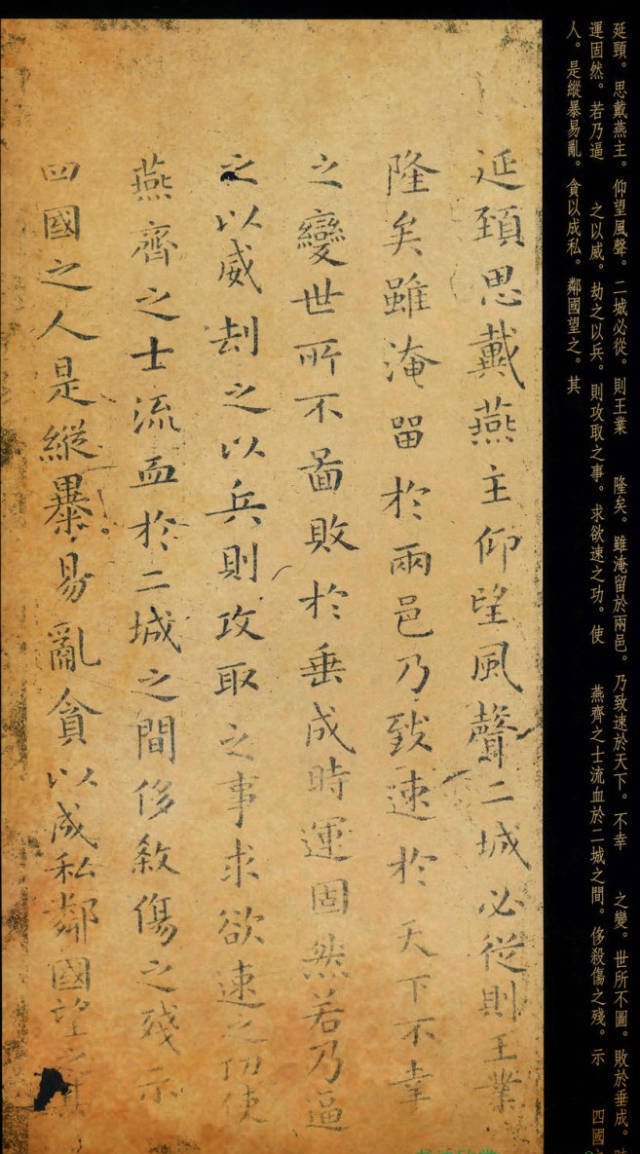 延頸思戴燕主仰望風聲二城必從則王業
隆矣雖淹留於兩邑乃致速於天下不幸
之變世所不啚敗於垂成時運固然若乃逼
之以威刦之以兵則攻取之事求欲速之功使
燕齊之士流血於二城之間侈敘傷之殘示
四國之人是縱暴易亂貪以成私鄰國望之其
延頸。思戴燕主。仰望風聲。二城必從。則王業　隆矣。雖淹留於兩邑。乃致速於天下。不幸　之變。世所不圖。敗於垂成。時
運固然。若乃逼　之以威。劫之以兵。則攻取之事。求欲速之功。使　燕齊之士流血於二城之間。侈殺傷之殘。示　四國之
人。是縱暴易亂。貪以成私。鄰國望之。其